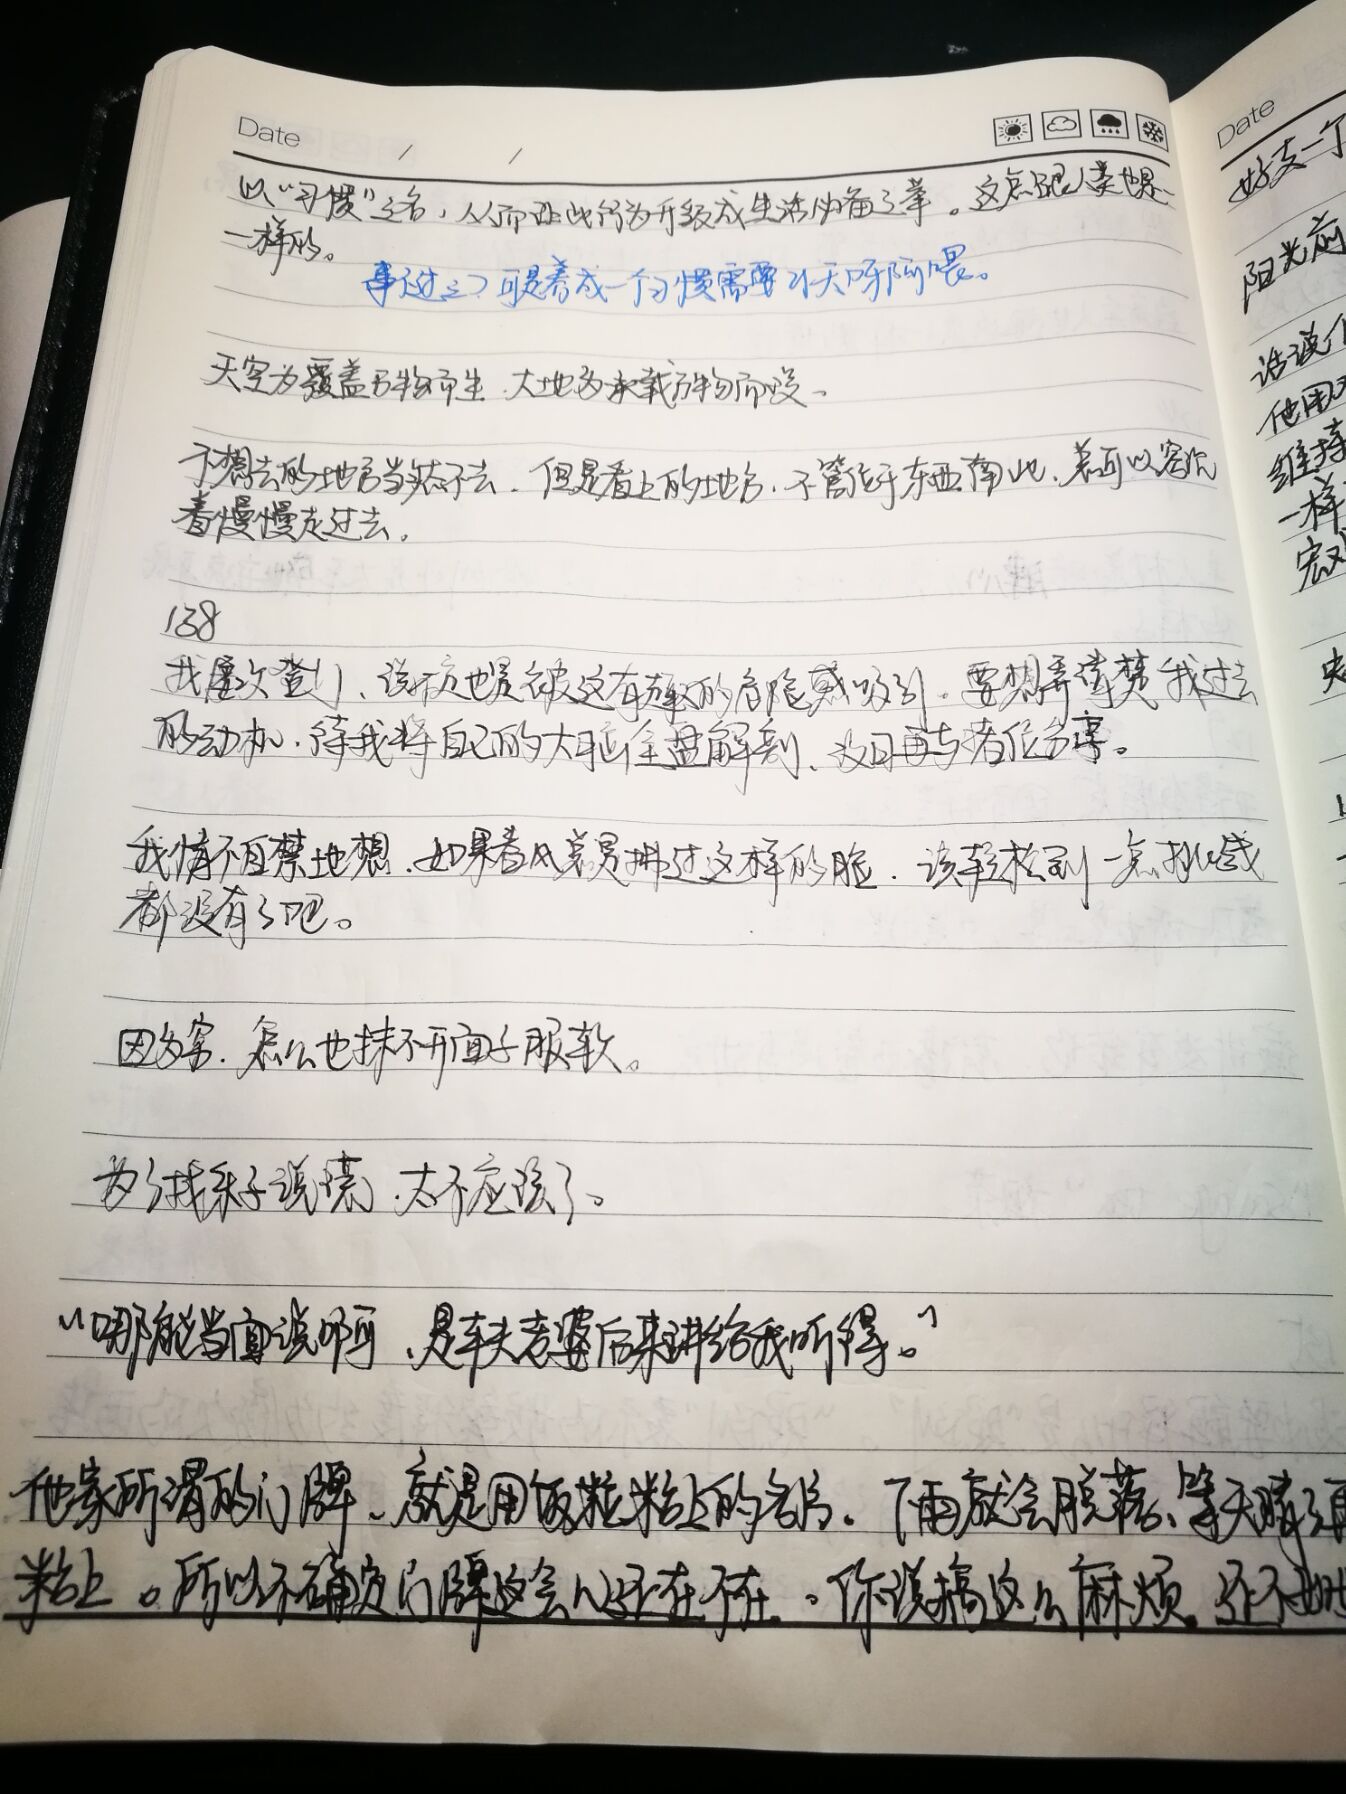 Date / /
以“习惯”之名，从而让此行为升级成生活必备之举。这点跟人类也是一
一样的。
事不过三？可是养成一个习惯需要21天呀阿喂。
天空为覆盖万物而生，大地为承载万物而设。
不想去的地方当然不去，但是看上的地方，不管位于东西南北，总可以
着慢慢走过去。
138
我屡次登门，说不定也是被这有趣的危险感吸引。要想弄清楚我过去
的动机，待我将自己的大脑全盘解剖，改日再与诸位分享。
我情不自禁地想，如果春风总是拂过这样的脸，该轻松到一点挑战
都没有了吧。
因为穷，怎么也抹不开面子服软。
为了找乐子说谎，太不应该了。
“哪能当面说啊，是车夫老婆后来讲给我听得。”
他家所谓的门牌，就是用饭粒粘上的名片。下雨就会脱落，等天晴了再
粘上。所以不确定门牌这会儿还在不在。你说搞这么麻烦，还不如
Date
好支一个
阳光
话说
他用
维持
一样